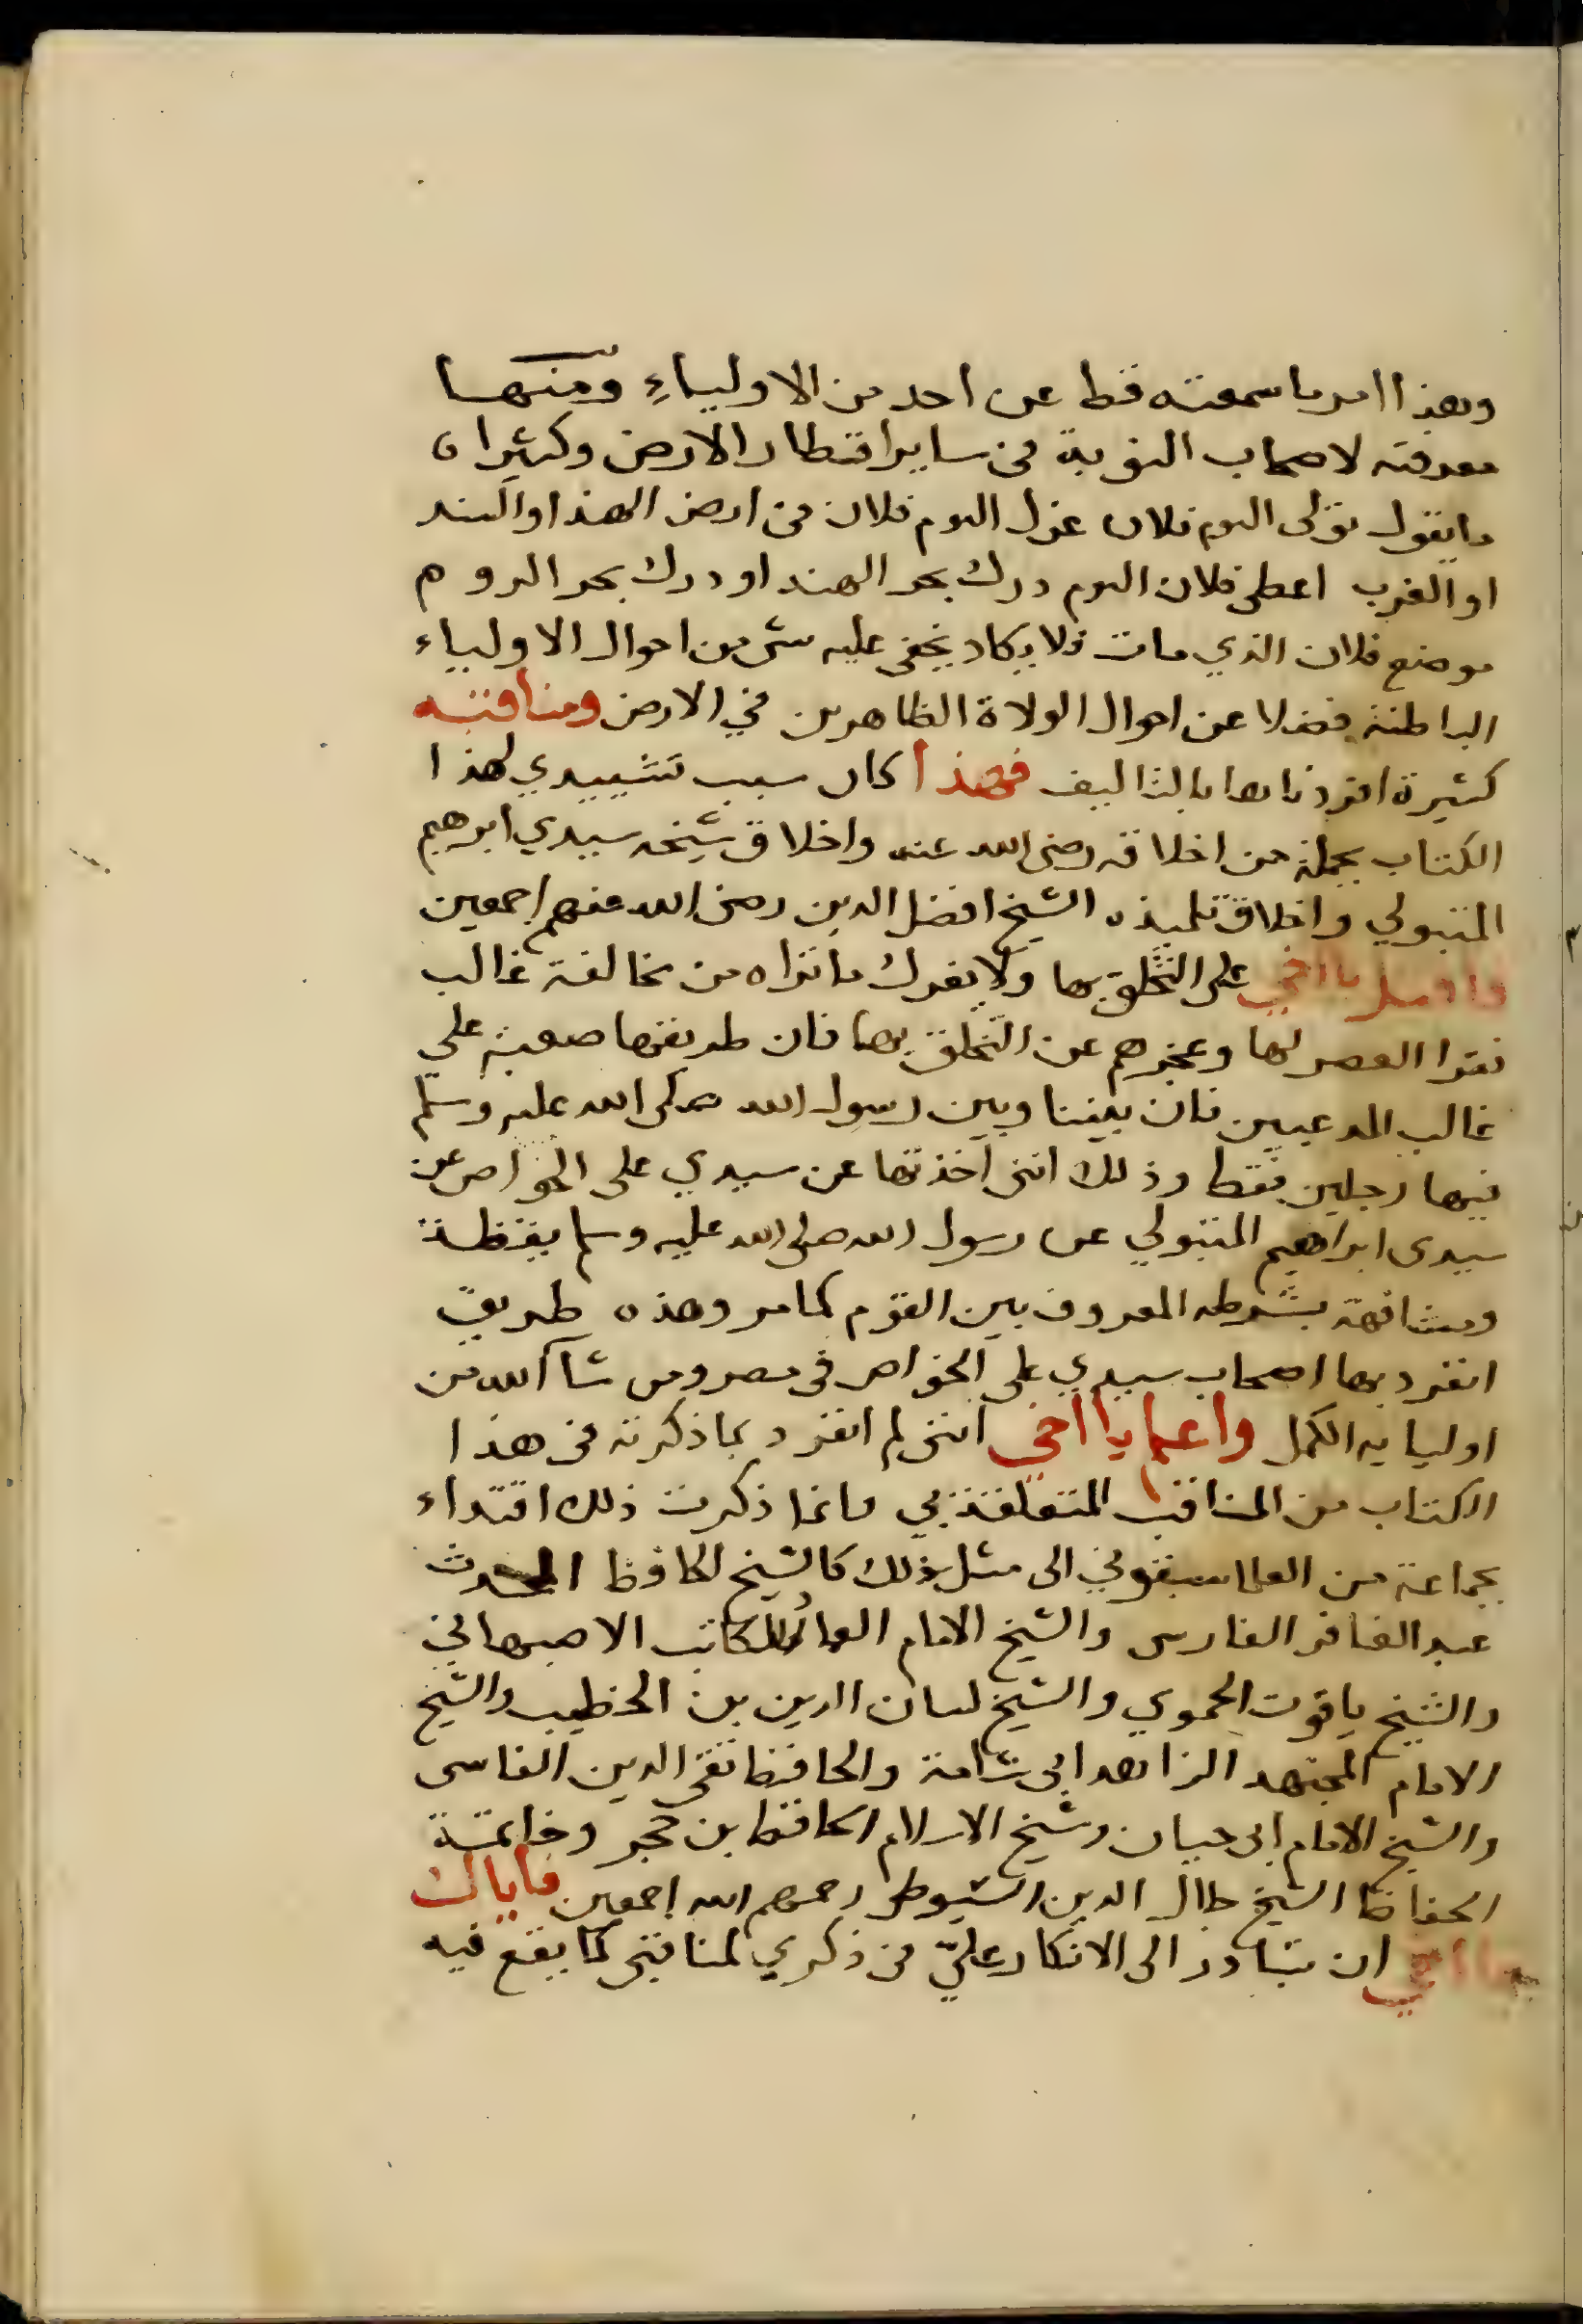 وهذا امر ما سمعته قط عن احد من الاولياءِ ومنها
معرفته لاصحاب النوبة في ساير اقطار الارض وكثيرا ه
ما يقول تولى اليوم فلان عزل اليوم فلان من ارض الهند او السند
او الغرب اعطى فلان اليوم درك بحر الهند او درك بحر الروم
موضع فلان الذي مات فلا يكاد يخفى عليه شي من احوال الاولياء
الباطنة فضلا عن احوال الولاة الظاهرين في الارض ومناقبه
كثيرة افردناها بالتاليف فهذا كان سبب تشييدي لهذا
الكتاب بجملة من اخلاقه رضي الله عنه واخلاق شيخه سيدي ابرهيم
المتبولي واخلاق تلميذه الشيخ افضل الدين رضي الله عنهم اجمعين
يا اخي على التخلق بها ولا يغرك ما تراه من مخالفة غالب
فقرا العصر لها وعجزهم عن التخلق بها فان طريقها صعبة علي
غالب المدعيين فان بيننا وبين رسول الله صلى الله عليه وسلم
فيها رجلين فقط وذلك انني اخذتها عن سيدي على الخواص عن
سيدى ابراهيم المتبولي عن رسول الله صلى الله عليه وسلم يقظة
ومشافهة بشرطه المعروف بين القوم كما مر وهذه طريق
انفرد بها اصحاب سيدي على الخواص فى مصر ومن شا الله من
اوليايه الكمل واعلم يا اخي انني لم انفرد بما ذكرته في هذا
الكتاب من المناقب المتعلقة بي وانما ذكرت ذلك اقتداء
بجماعة من العلما سبقوني الى مثل ذلك كالشيخ الحافظ المحدث
عبد الغافر الفارسي والشيخ الامام العماد الكاتب الاصبهاني
والشيخ ياقوت الحموي والشيخ لسان الدين بن الخطيب والشيخ
الامام المجتهد الزاهد ابى شامة والحافظ تقي الدين الفاسى
والشيخ الامام ابى حيان وشيخ الاسلام الحافظ بن حجر وخاتمة
الحفاظ الشيخ جلال الدين السيوطى رحمهم الله اجمعين فاياك
يا اخي ان تبادر الى الانكار عليّ من ذكري لمناقبي كما يقع فيه